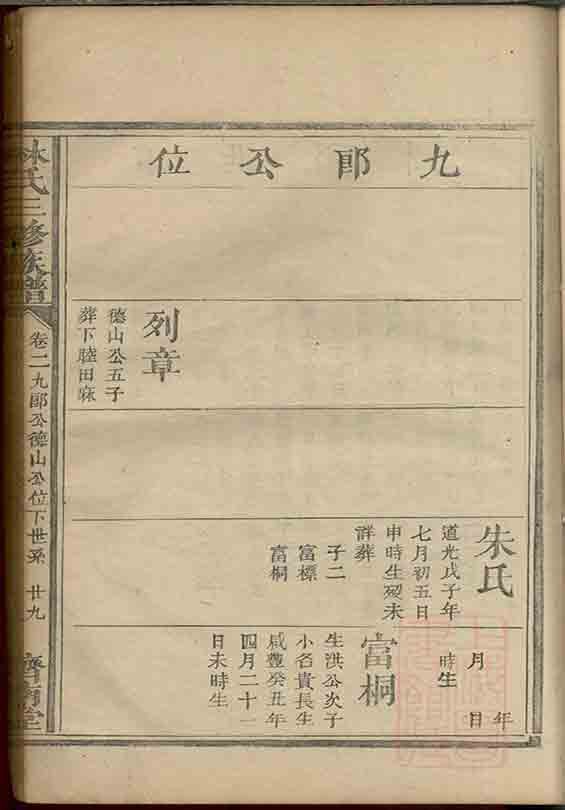 九郎公位
列章
德山公五子
葬下睦田寐
朱氏
道光戊子年
七月初五日
申時生殁未
詳葬
子二
富標
富桐
年
月
日
時生
富桐
生洪公次子
小名貴長生
咸豐癸丑年
四月二十一
日未時生
林氏三修族譜
卷二九郎公德山公位下世系
廿九